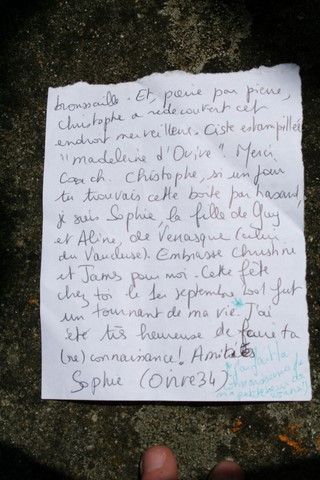 broussaille. Et, pierre par pierre,
Christophe a redécouvert cet
endroit merveilleux. Ciste estampillée
"madeleine d'Ovive". Merci
Coach. Christophe, si un jour
tu trouvais cette boîte par hasard,
je suis Sophie, la fille de Guy
et Aline, de Venasque (celui
du Vaucluse). Embrasse Christine
et James pour moi. Cette fête
chez toi le 1er septembre 2001 fut
un tournant de ma vie.* J'ai
été très heureuse de faire ta
(re)connaissance! Amitiés
Sophie (Ovive34)
* J'ai fait la
connaissance de